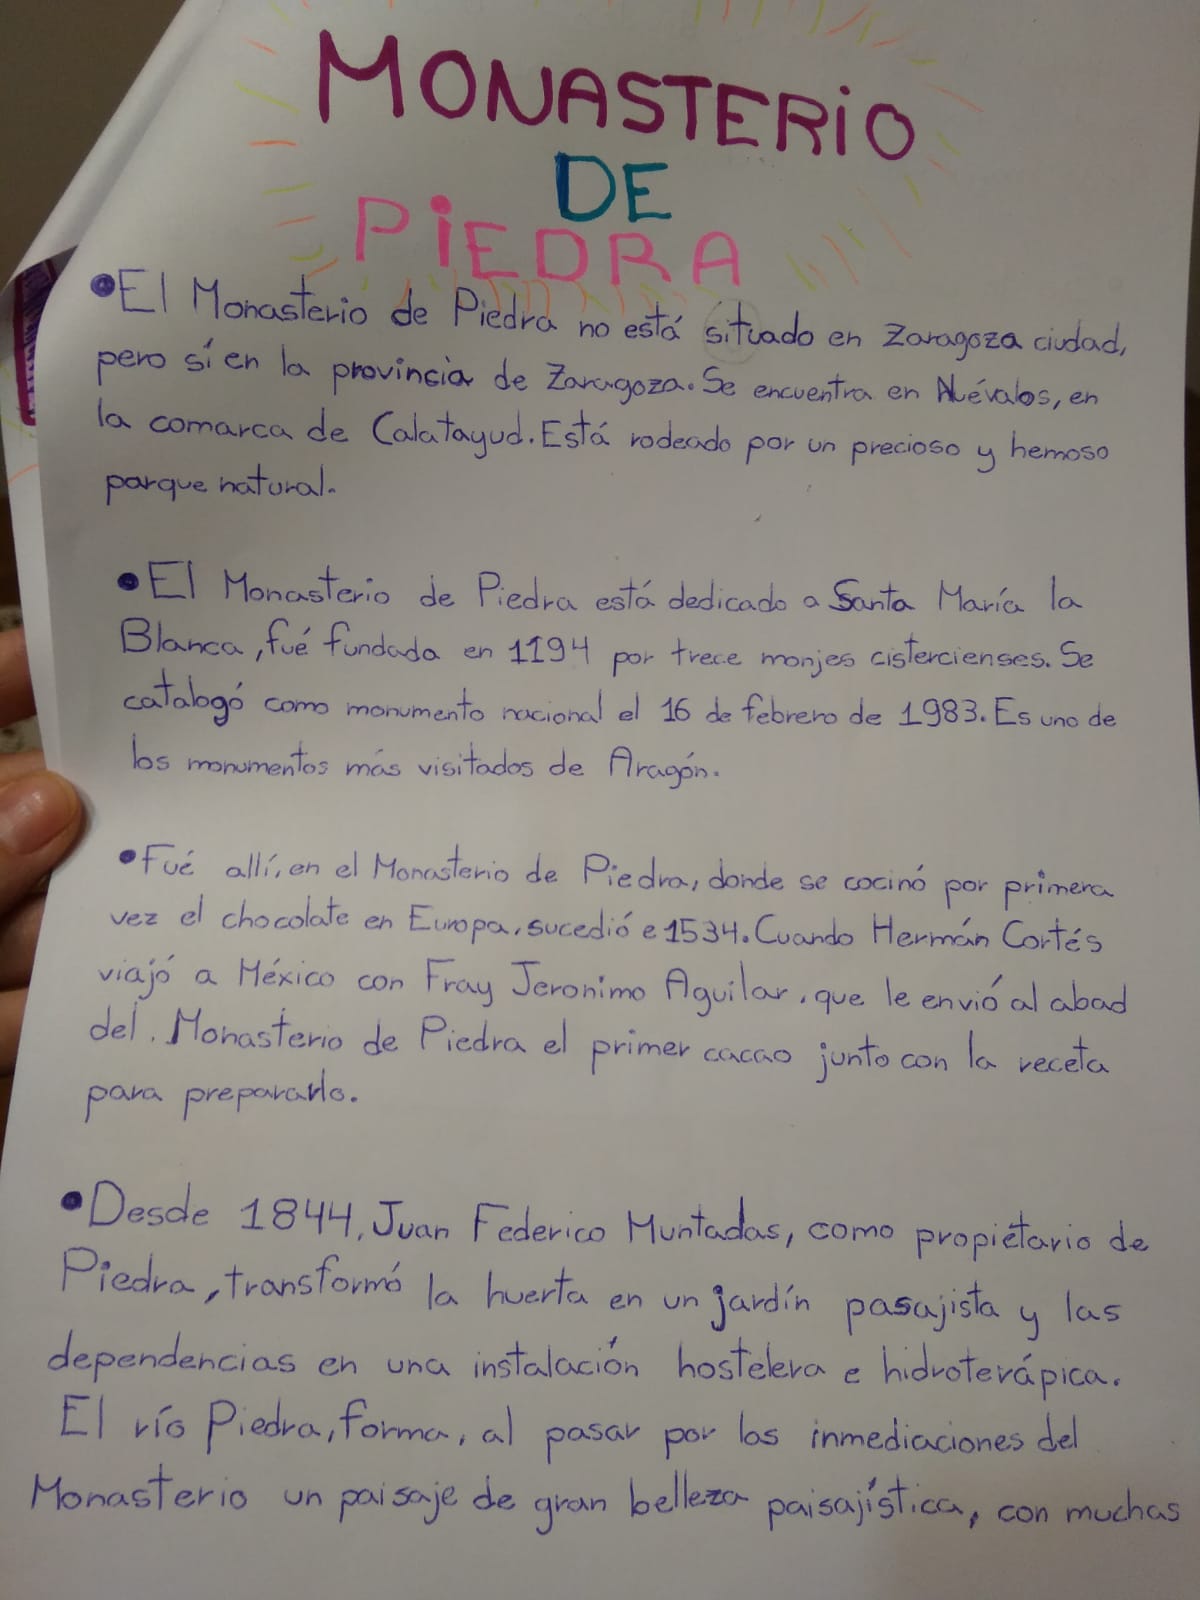 MONASTERIO
DE
PIEDRA
•El Monasterio de Piedra no está situado en Zaragoza ciudad,
pero sí en la provincia de Zaragoza. Se encuentra en Nuévalos, en
la comarca de Calatayud. Está rodeado por un precioso y hemoso
parque natural.
•El Monasterio de Piedra está dedicado a Santa María la
Blanca, fué fundada en 1194 por trece monjes cistercienses. Se
catalogó como monumento nacional el 16 de febrero de 1983. Es uno de
los monumentos más visitados de Aragón.
•Fué allí, en el Monasterio de Piedra, donde se cocinó por primera
vez el chocolate en Europa, sucedió e 1534. Cuando Hermán Cortés
viajó a México con Fray Jeronimo Aguilar, que le envió al abad
del. Monasterio de Piedra el primer cacao junto con la receta
para prepararlo.
•Desde 1844, Juan Federico Muntadas, como propietario de
Piedra, transformó la huerta en un jardín pasajista y las
dependencias en una instalación hostelera e hidroterápica.
El río Piedra, forma, al pasar por las inmediaciones del
Monasterio un paisaje de gran belleza paisajística, con muchas